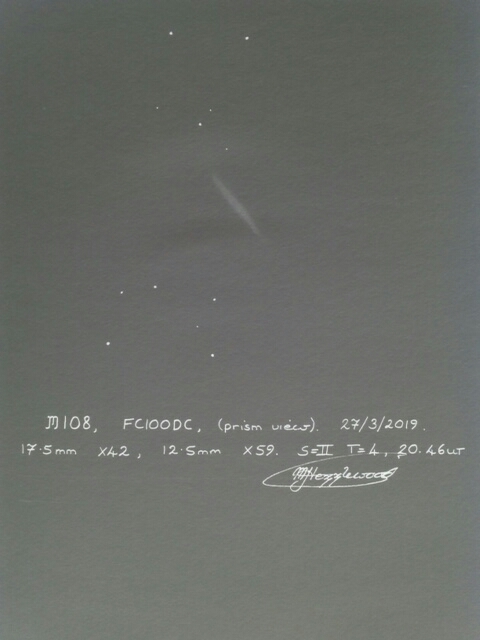 M108, FC100DC, (prism view). 27/3/2019.
17.5mm X42, 12.5mm X59. S=II T=4, 20.46ut